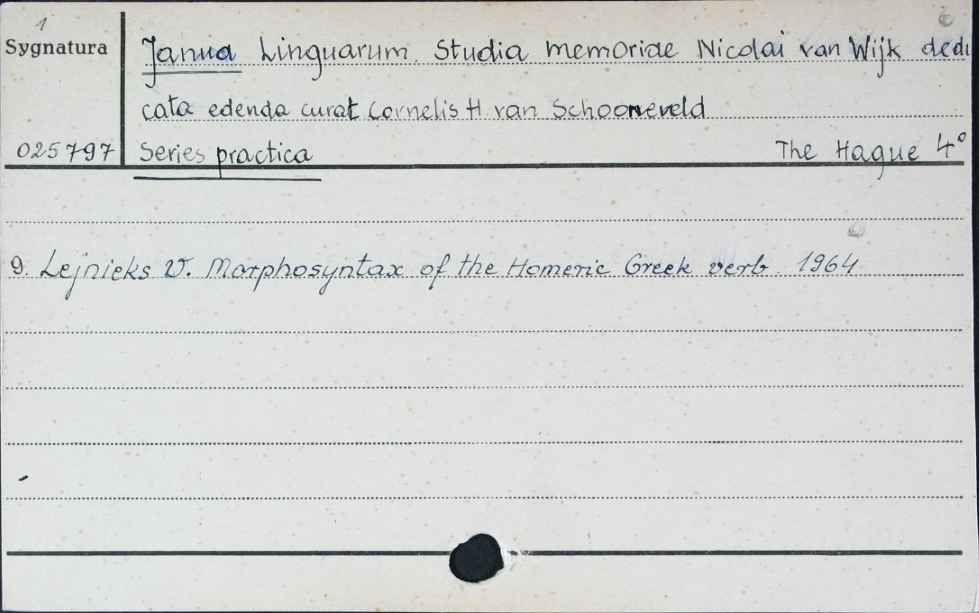 1
Sygnatura
Janua Linguarum. Studia memoriae Nicolai van Wijk dedi
cata edenda curat Cornelis H. van Schooneveld
025797 Series practica The Hague 4°
9. Lejnieks V. Morphosyntax of the Homeric Greek verb. 1964